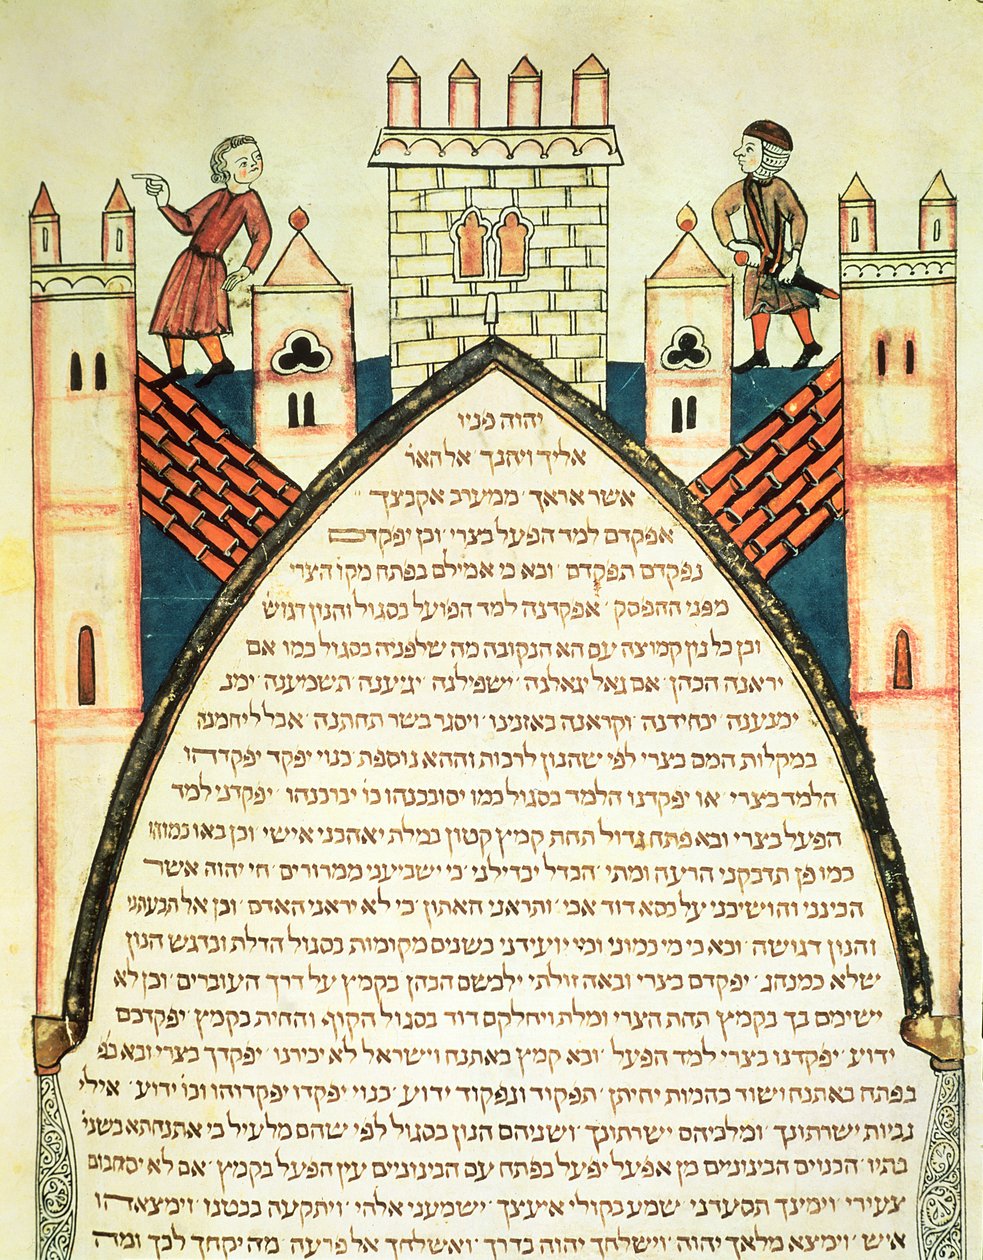 יהוה פניו
אליך ויחנך אל האר
אשר אראך ממערב אקבצך
אפקדם למד הפעל בצרי וכן יפקדם
נפקדם תפקדם ובא כי אמילם בפתח מקו הצרי
מפני ההפסק אפקדנה למד הפועל בסגול והנון דגוש
וכן כל נון קמוצה עם הא הנקובה מה שלפניה בסגול כמו אם
יראנה הכהן אם גאל יגאלנה ישפילנה יגיענה תשמענה ימנ
ימנענה יכחידנה וקראנה באזנינו ויסגר בשר תחתנה אבל ליחמנה
במקלות המם בצרי לפי שהנון לרבות וההא נוספת כנוי יפקד יפקדהו
הלמד בצרי או יפקדנו הלמד בסגול כמו יסובבנהו כו יברכנהו יפקדני למד
הפעל בצרי ובא פתח גדול תחת קמץ קטון במלת יאהבני אישי וכן באו כמוהו
כמו פן תדבקני הרעה ומתי הבדל יבדילני כי ישביעני ממרורים חי יהוה אשר
הכינני והושיבני על כסא דוד אבי ותראני האתון כי לא יראני האדם וכן אל תבעתני
והנון דגושה ובא כי מי כמוני ומי יועידני בשנים מקומות בסגול הדלת ובדגש הנון
שלא כמנהג יפקדם בצרי ובאה זולתי ילבשם הכהן בקמץ על דרך העוברים וכן לא
ישימם בך בקמץ תחת הצרי ומלת ויחלקם דוד בסגול הקוף והחית בקמץ יפקדכם
ידוע יפקדנו בצרי למד הפעל ובא קמץ באתנח וישראל לא יכירנו יפקדך בצרי ובא כפ
בפתח באתנח ושוד בהמות יחיתן תפקוד ונפקוד ידוע כנוי יפקדו יפקדוהו וכו ידוע אילי
נביות ישרתונך ומלכיהם ישרתונך ושניהם הנון בסגול לפי שהם מלעיל כי אתנחתא בשני
בתיו הכנוים הבינונים מן אפעל יפעל בפתח עם הבינונים עין הפעל בקמץ אם לא יסחבום
צעירי וימינך תסעדני שמע בקולי איעצך ישמעני אלהי ויתקעה בבטנו וימצאהו
איש וימצא מלאך יהוה וישלחך יהוה בדרך ואשלחך אל פרעה מה יקחך לבך ומה